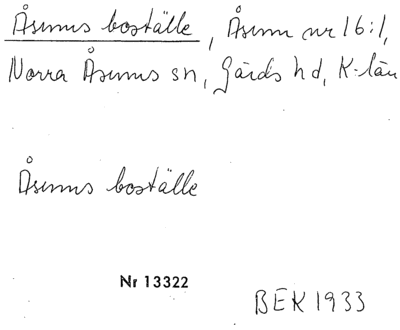 Åsums boställe, Åsum nr 16:1,
Norra Åsums sn, Gärds hd, K-län
Åsums boställe
Nr 13322
BEK 1933